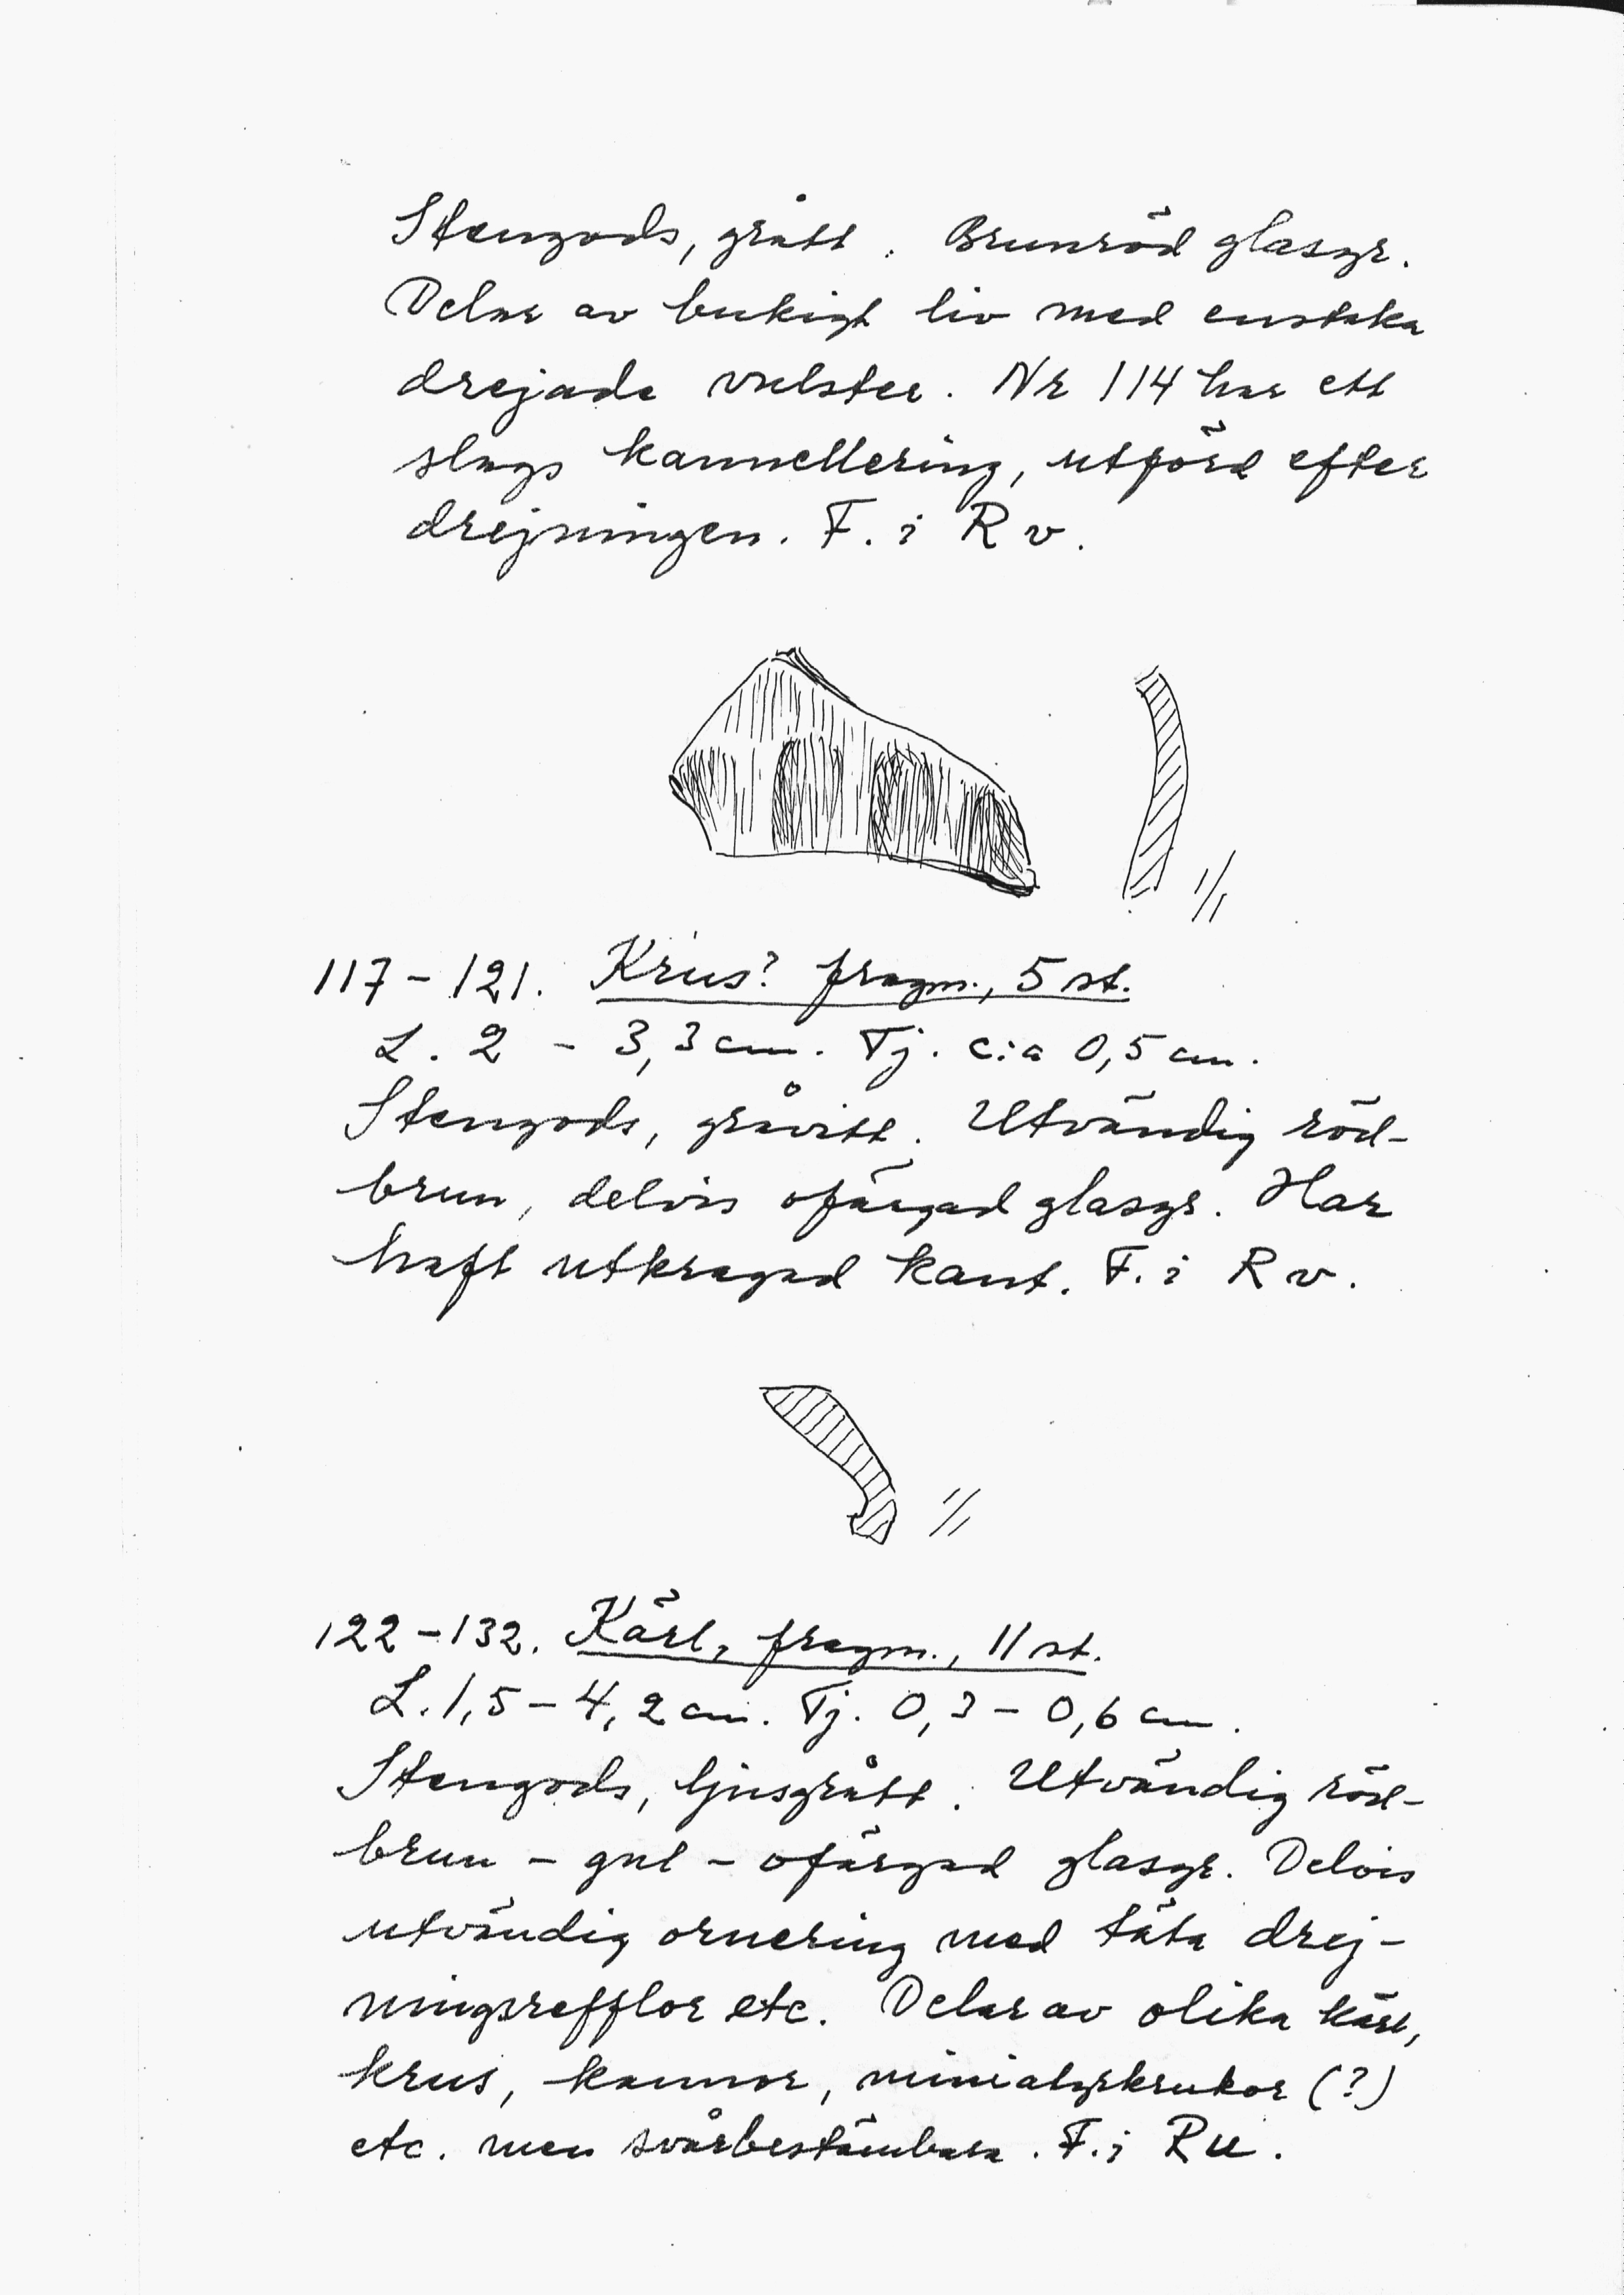 Stengods, grått. Brunröd glasyr.
Delar av bukigt liv med enstaka
drejade vulster. Nr 114 har ett
slags kannellering, utförd efter
drejningen. F. i R v.
1/1
117-121. Krus? fragm., 5 st.
L. 2 - 3,3 cm. Tj. c:a 0,5 cm.
Stengods, gråvitt. Utvändig röd-
brun, delvis ofärgad glasyr. Har
haft utkragad kant. F. i R v.
1/1
122-132. Kärl, fragm., 11 st.
L. 1,5 - 4,2 cm. Tj. 0,3 - 0,6 cm.
Stengods, ljusgrått. Utvändig röd-
brun - gul - ofärgad glasyr. Delvis
utvändig ornering med täta drej-
ningsrefflor etc. Delar av olika kärl,
krus, kannor, (?)
etc. men svårbestämbara. F. i